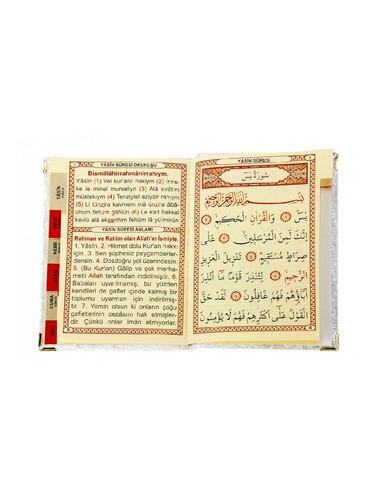 YÂSİN SÛRESİ OKUNUŞU
Bismillâhirrahmânirrahıym.
Yâsîn (1) Vel kur'ânil hakıym (2) İnne-
ke le minel murseliyn (3) Alâ sırâtim
müstekıym (4) Tenziylel aziyzir rahıym
(5) Li tünzira kavmem mâ ünzira âbâ-
ühum fehüm ğâfilûn (6) Le kad hakkal
kavlü alâ ekserihim fehüm lâ yü'minûn
YÂSİN SÛRESİ ANLAMI
Rahman ve Rahim olan Allah'ın İsmiyle.
1. Yâsîn. 2. Hikmet dolu Kur'an hakkı
için. 3. Sen şüphesiz peygamberler-
densin. 4. Dosdoğru yol üzerindesin.
5. (Bu Kur'an) Gâlip ve çok merha-
metli Allah tarafından indirilmiştir. 6.
Babaları uyarılmamış, bu yüzden
kendileri de gaflet içinde kalmış bir
toplumu uyarman için indirilmiş-
tir. 7. Yemin olsun ki onların çoğu
gafletlerinin cezasını hak etmişler-
dir. Çünkü onlar îman etmiyorlar.
YÂSİN
CUMA
YÂSİN SÛRESİ
سُورَةُ يٰسٓ
بِسْمِ اللّٰهِ الرَّحْمٰنِ الرَّحِيمِ
يٰسٓ ۝ وَالْقُرْاٰنِ الْحَكِيمِ ۝
اِنَّكَ لَمِنَ الْمُرْسَلِينَ ۝ عَلٰى
صِرَاطٍ مُسْتَقِيمٍ ۝ تَنْزِيلَ الْعَزِيزِ
الرَّحِيمِ ۝ لِتُنْذِرَ قَوْمًا مَٓا اُنْذِرَ
اٰبَٓاؤُهُمْ فَهُمْ غَافِلُونَ ۝ لَقَدْ حَقَّ
الْقَوْلُ عَلٰٓى اَكْثَرِهِمْ فَهُمْ لَا يُؤْمِنُونَ
4